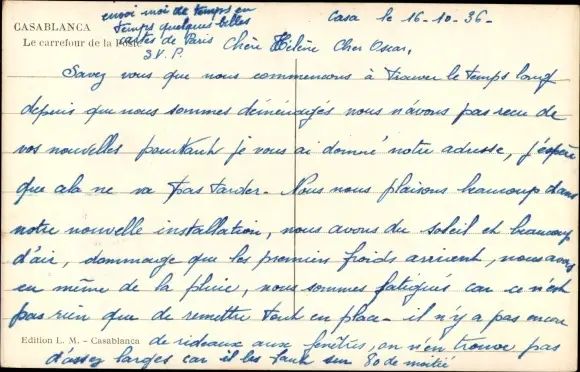 envoi moi de temps en
temps quelques belles
cartes de Paris
S.V.P.
CASABLANCA
Le carrefour de la Poste
Casa le 16-10-36-
Chère Hélène Cher Oscar,
Savez vous que nous commencons à trouver le temps long
depuis que nous sommes déménagés nous n'avons pas recu de
vos nouvelles pourtant je vous ai donné notre adresse, j'espère
que cela ne va pas tarder- Nous nous plaisons beaucoup dans
notre nouvelle installation, nous avons du soleil et beaucoup
d'air, dommage que les premiers froids arrivent, nous avons
eu même de la pluie, nous sommes fatigués car ce n'est
pas rien que de remettre tout en place- il n'y a pas encore
de rideaux aux fenêtres, on n'en trouve pas
d'assez larges car il les faut sur 80 de moitié
Edition L. M. - Casablanca